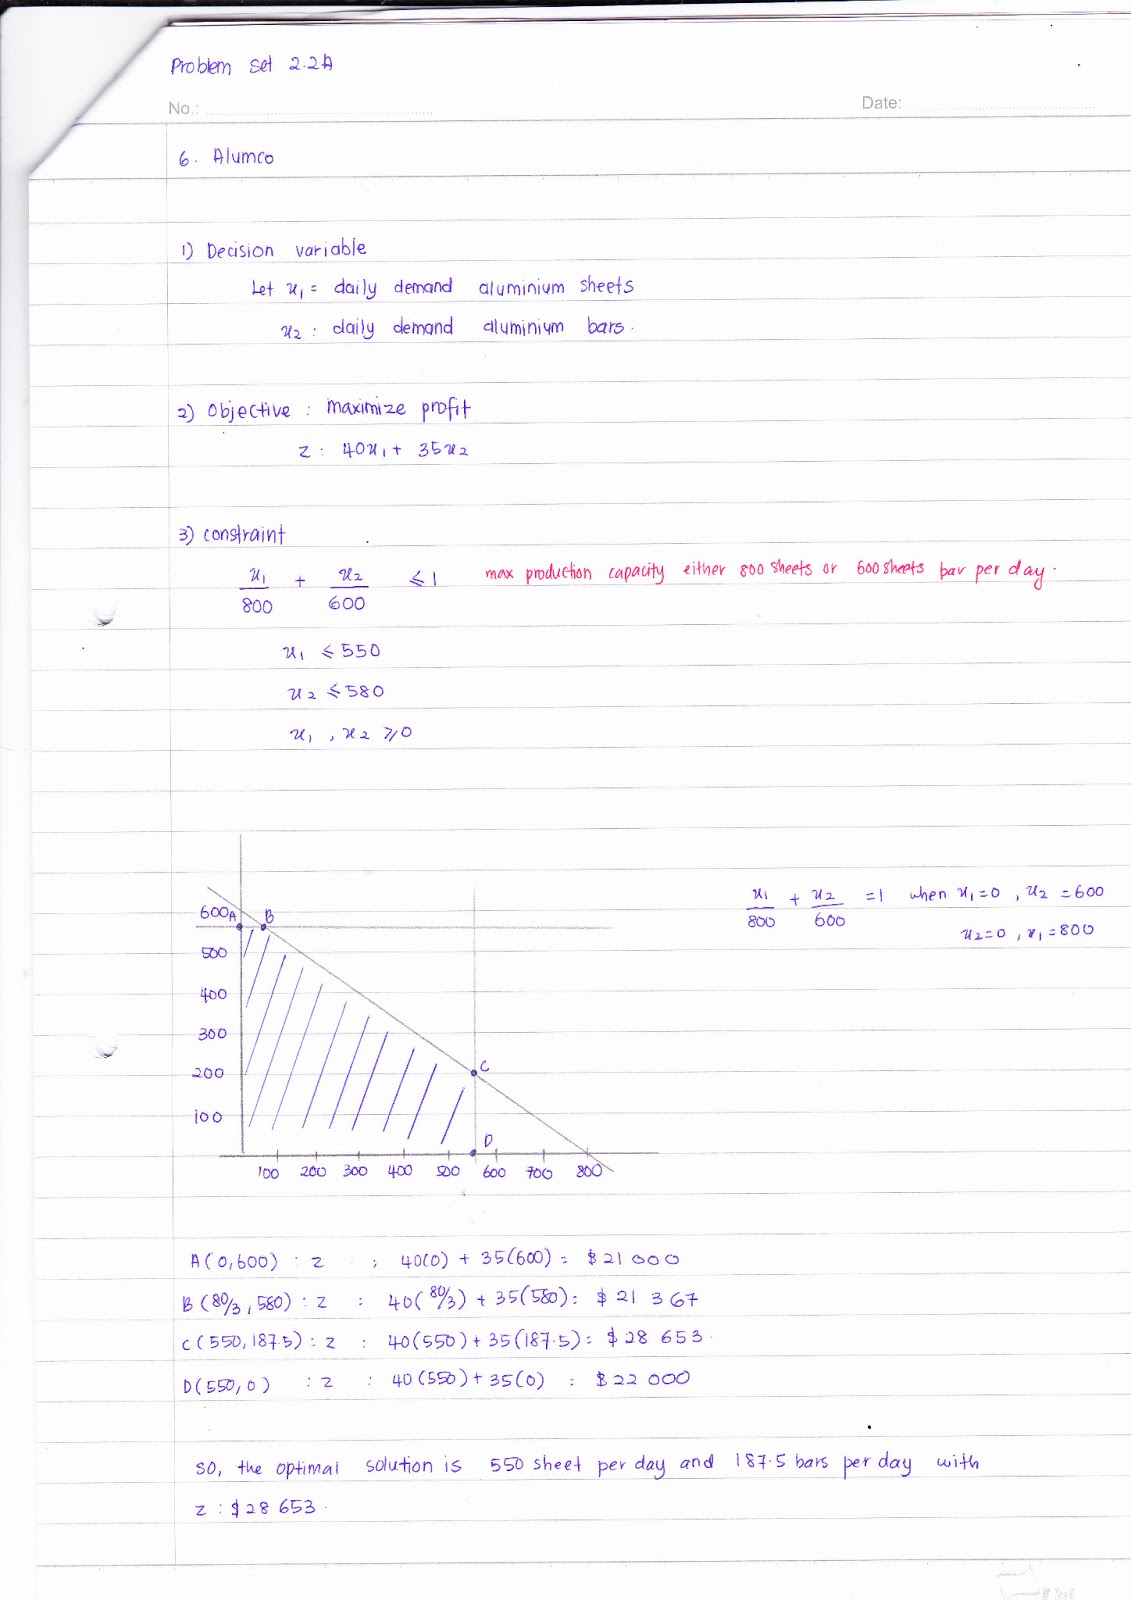 Problem set 2.2A
No.:
Date:
6. Alumco
1) Decision variable
Let x₁ = daily demand aluminium sheets
x₂ : daily demand aluminium bars.
2) Objective : maximize profit
z : 40x₁ + 35x₂
3) constraint
x₁/800 + x₂/600 ≤ 1 max production capacity either 800 sheets or 600 sheets bar per day.
x₁ ≤ 550
x₂ ≤ 580
x₁ , x₂ ≥ 0
x₁/800 + x₂/600 = 1 when x₁=0 , x₂ = 600
x₂=0 , x₁ = 800
600 A B
500
400
300
200 C
100
D
100 200 300 400 500 600 700 800
A(0,600) : z : 40(0) + 35(600) : $21 000
B(80/3, 580) : z : 40(80/3) + 35(580) : $ 21 367
C(550, 187.5) : z : 40(550) + 35(187.5) : $28 653.
D(550, 0) : z : 40(550) + 35(0) : $22 000
SO, the optimal solution is 550 sheet per day and 187.5 bars per day with
z : $28 653.